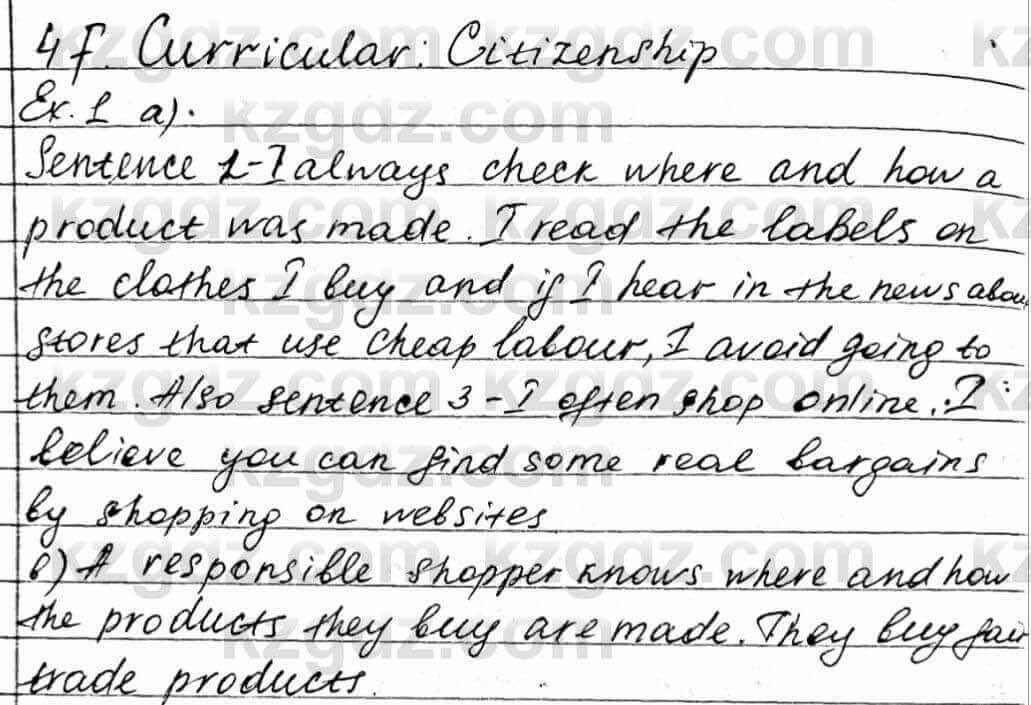 4f. Curricular: Citizenship
Ex. 1 a).
Sentence 1-I always check where and how a
product was made. I read the labels on
the clothes I buy and if I hear in the news abou
stores that use cheap labour, I avoid going to
them. Also sentence 3-I often shop online. I
believe you can find some real bargains
by shopping on websites
b) A responsible shopper knows where and how
the products they buy are made. They buy fair
trade products.
kzgdz.com